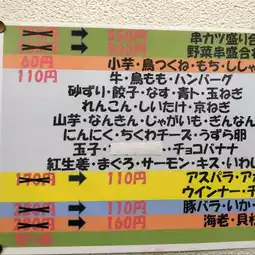 串カツ盛り合
野菜串盛合わ
60円 小芋・鳥つくね・もち・ししゃ
110円 牛・鳥もも・ハンバーグ
砂ずり・餃子・なす・青ト・玉ねぎ
れんこん・しいたけ・京ねぎ
山芋・なんきん・じゃがいも・ぎんなん
にんにく・ちくわチーズ・うずら卵
玉子・ ・チョコバナナ
紅生姜・まぐろ・サーモン・キス・いわし
→ 110円 アスパラ・アボ
ウインナー・チ
→ 110円 豚バラ・いか・
→ 160円 海老・貝柱